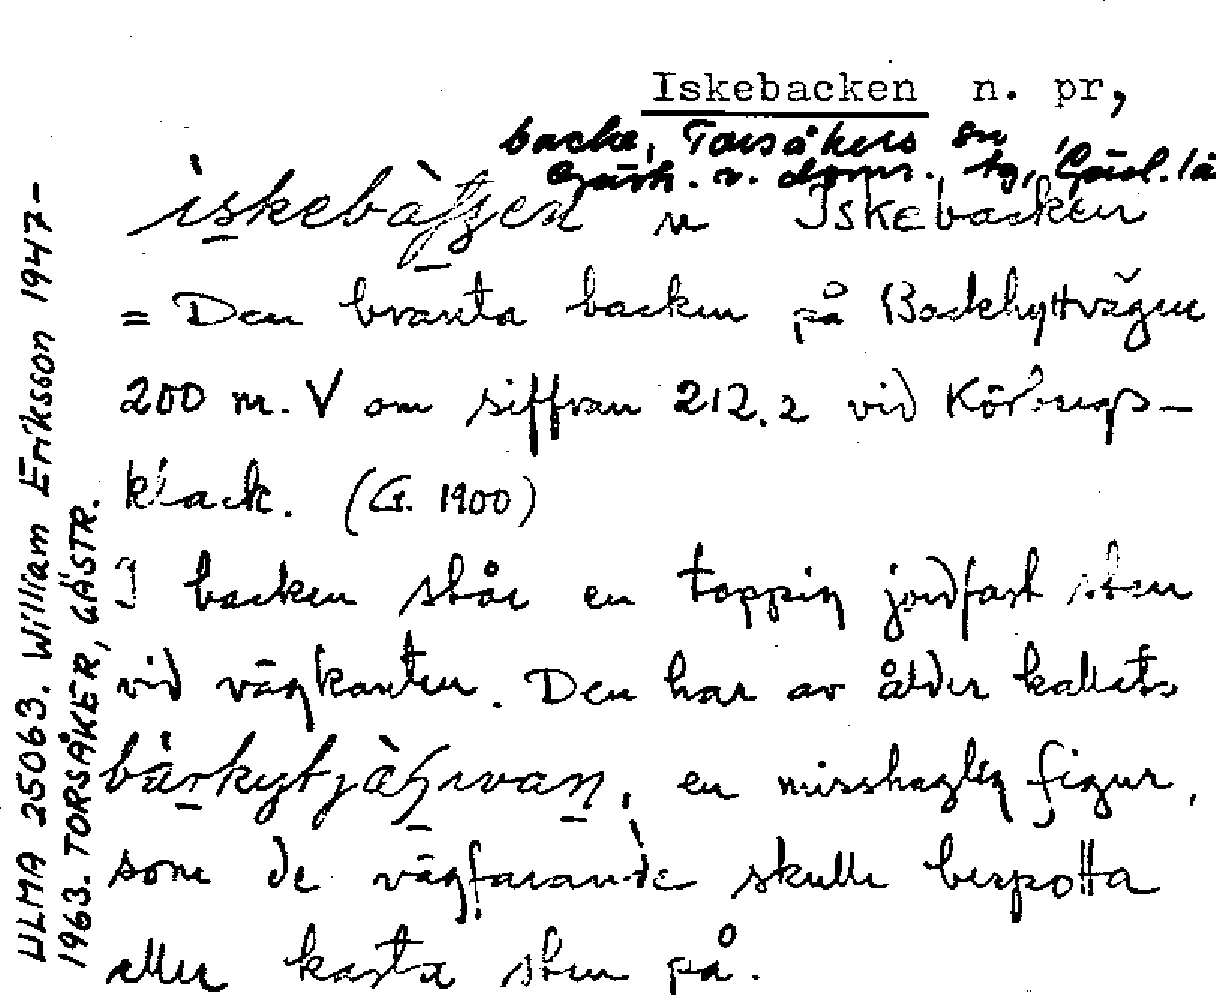 Iskebacken n. pr,
backe, Torsåkers sn
Gästr. v. doms. tg, Gävl. lä
Iskebacken
= Den branta backen på Backhyttvägen
200 m. V om siffran 212.2 vid
klack. (G. 1900)
I backen står en toppig jordfast sten
vid vägkanten. Den har av ålder kallats
en misshaglig figur,
som de vägfarande skulle bespotta
eller kasta sten på.
ULMA 25063. William Eriksson 1947-
1963. TORSÅKER, GÄSTR.